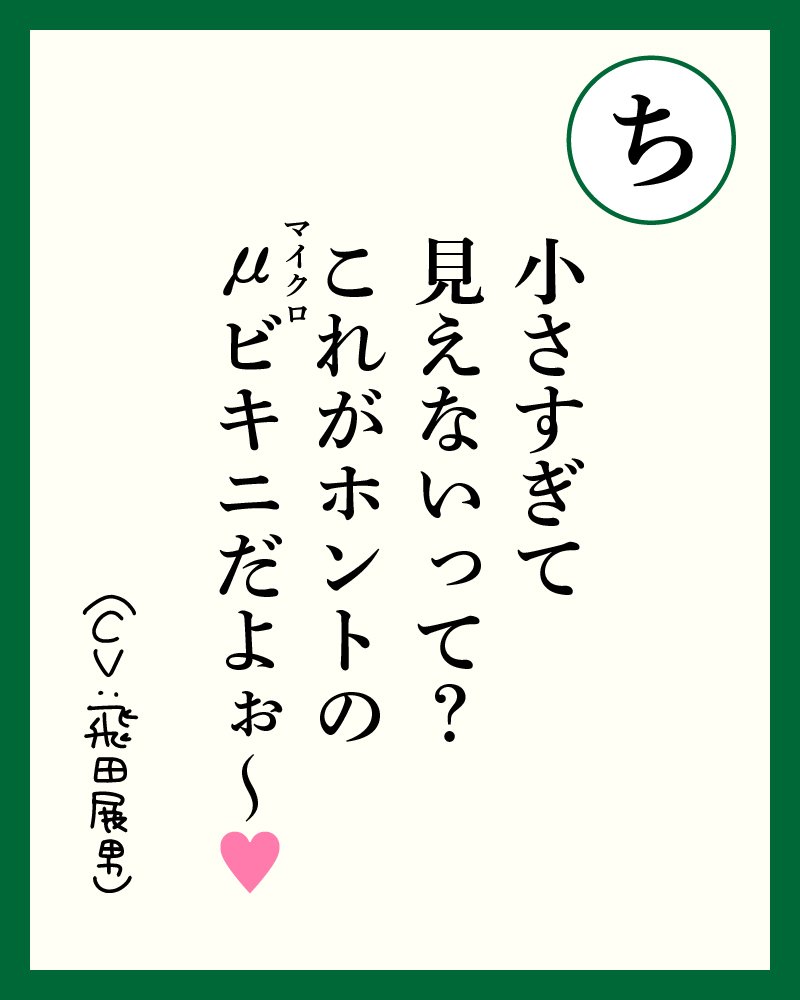 ち
小さすぎて
見えないって？
これがホントの
μビキニだよぉ〜♥
マイクロ
（CV:飛田展男）